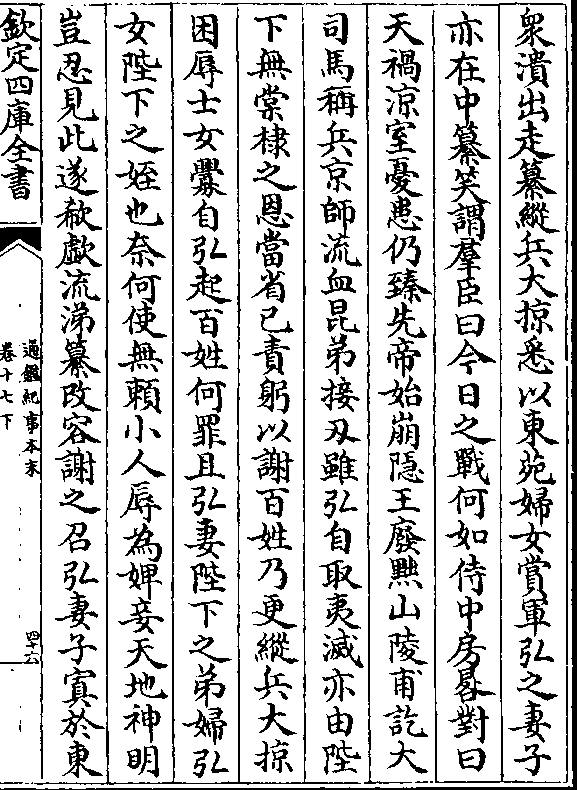 衆潰出走纂縱兵大掠悉以東苑婦女賞軍弘之妻子
亦在中纂笑謂羣臣曰今日之戰何如侍中房晷對曰
天禍涼室憂患仍臻先帝始崩隱王廢黜山陵甫訖大
司馬稱兵京師流血昆弟接刃雖弘自取夷滅亦由陛
下無棠棣之恩當省己責躬以謝百姓乃更縱兵大掠
困辱士女釁自弘起百姓何罪且弘妻陛下之弟婦弘
女陛下之姪也奈何使無賴小人辱為婢妾天地神明
豈忍見此遂欷歔流涕纂改容謝之召弘妻子寘於東
欽定四庫全書
通鑑紀事本末
卷十七下
四十六